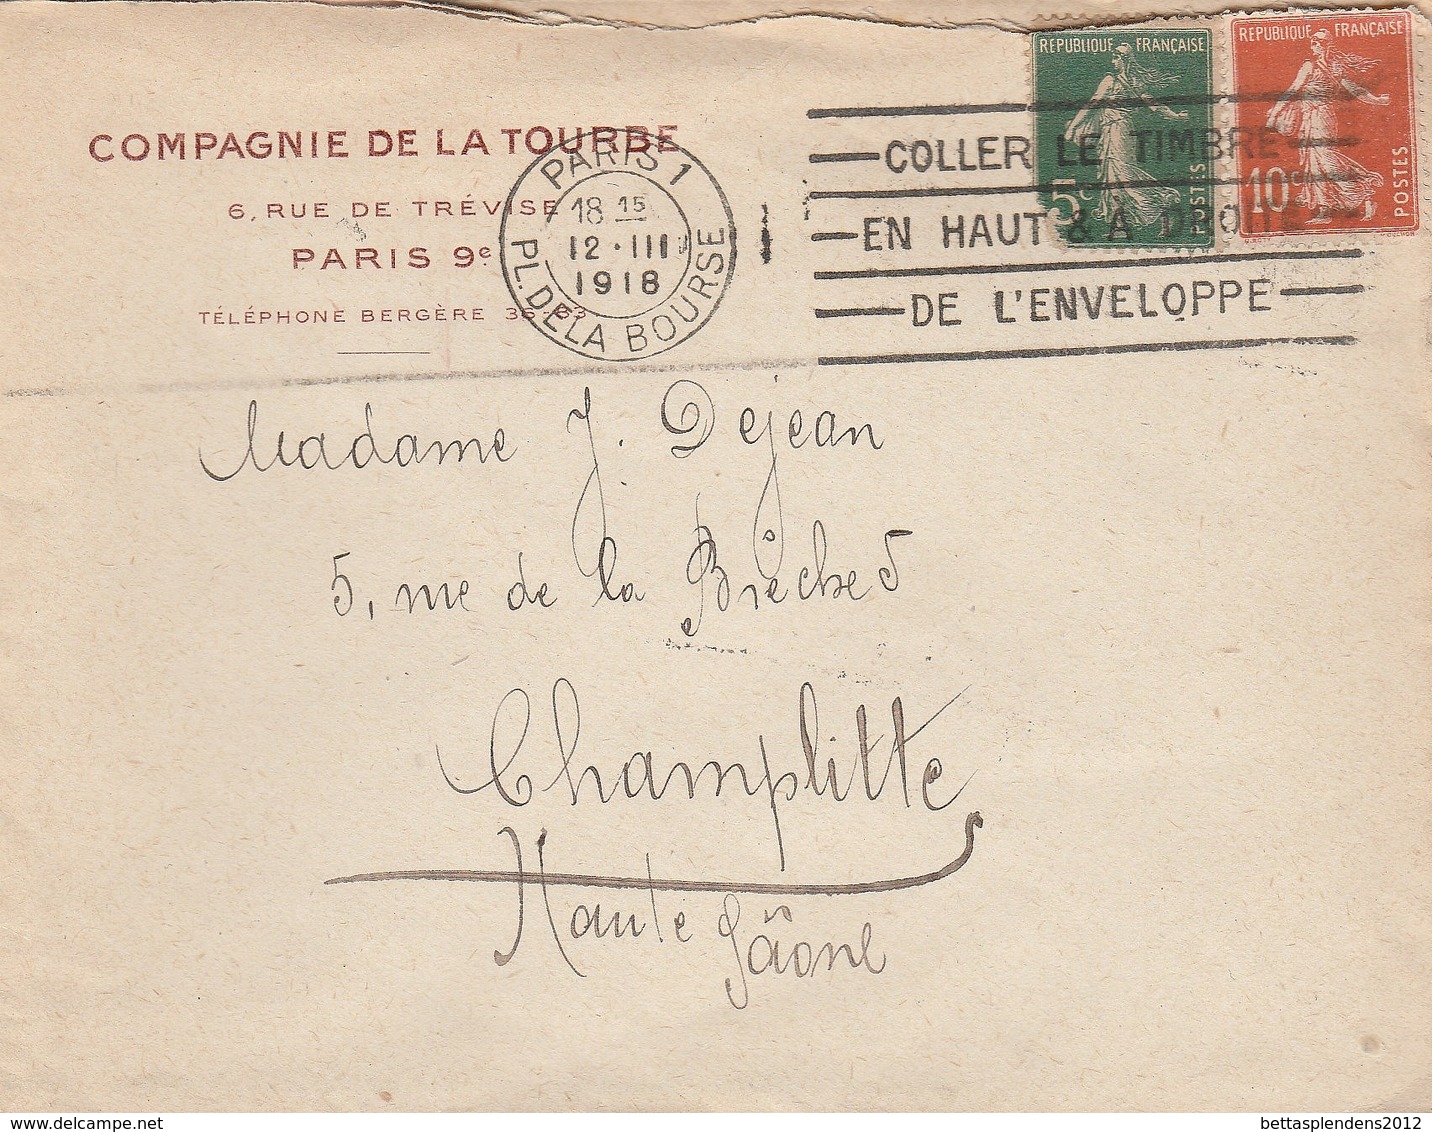 COMPAGNIE DE LA TOURBE
6, RUE DE TRÉVISE
PARIS 9e
TÉLÉPHONE BERGÈRE
PARIS 1
18 15
12·III
1918
PL. DE LA BOURSE
REPUBLIQUE FRANÇAISE
5c
POSTES
REPUBLIQUE FRANÇAISE
10c
POSTES
COLLER LE TIMBRE
EN HAUT & A DROITE
DE L'ENVELOPPE
Madame J. Dejean
5, rue de la
Champlitte
Haute Sâone
delcampe.net
bettasplendens2012